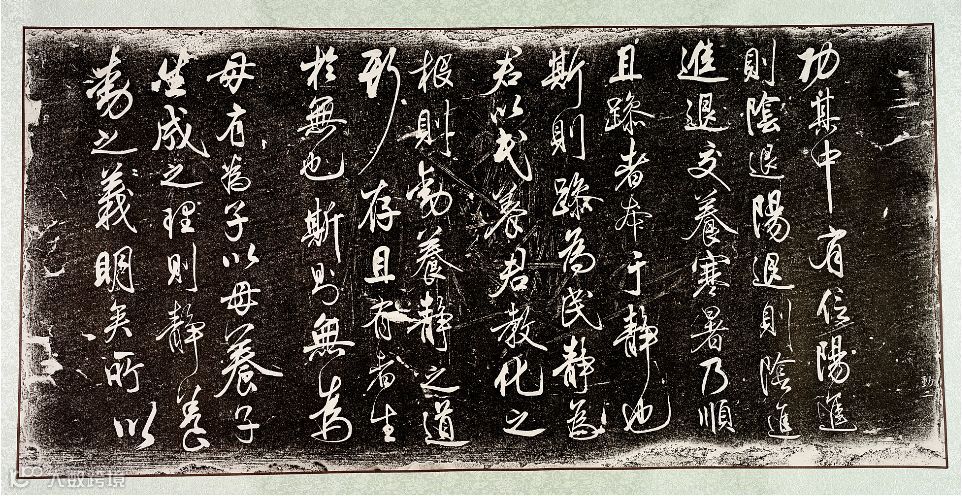 功其中有信陽進
則陰退陽退則陰進
進退交養寒暑乃順
且躁者本于靜也
斯則躁為民靜為
君以民養君教化之
根則動養靜之道
形存且有者生
於無也斯則無為
母有為子以母養子
生成之理則靜養
動之義明矣所以
大数跨境